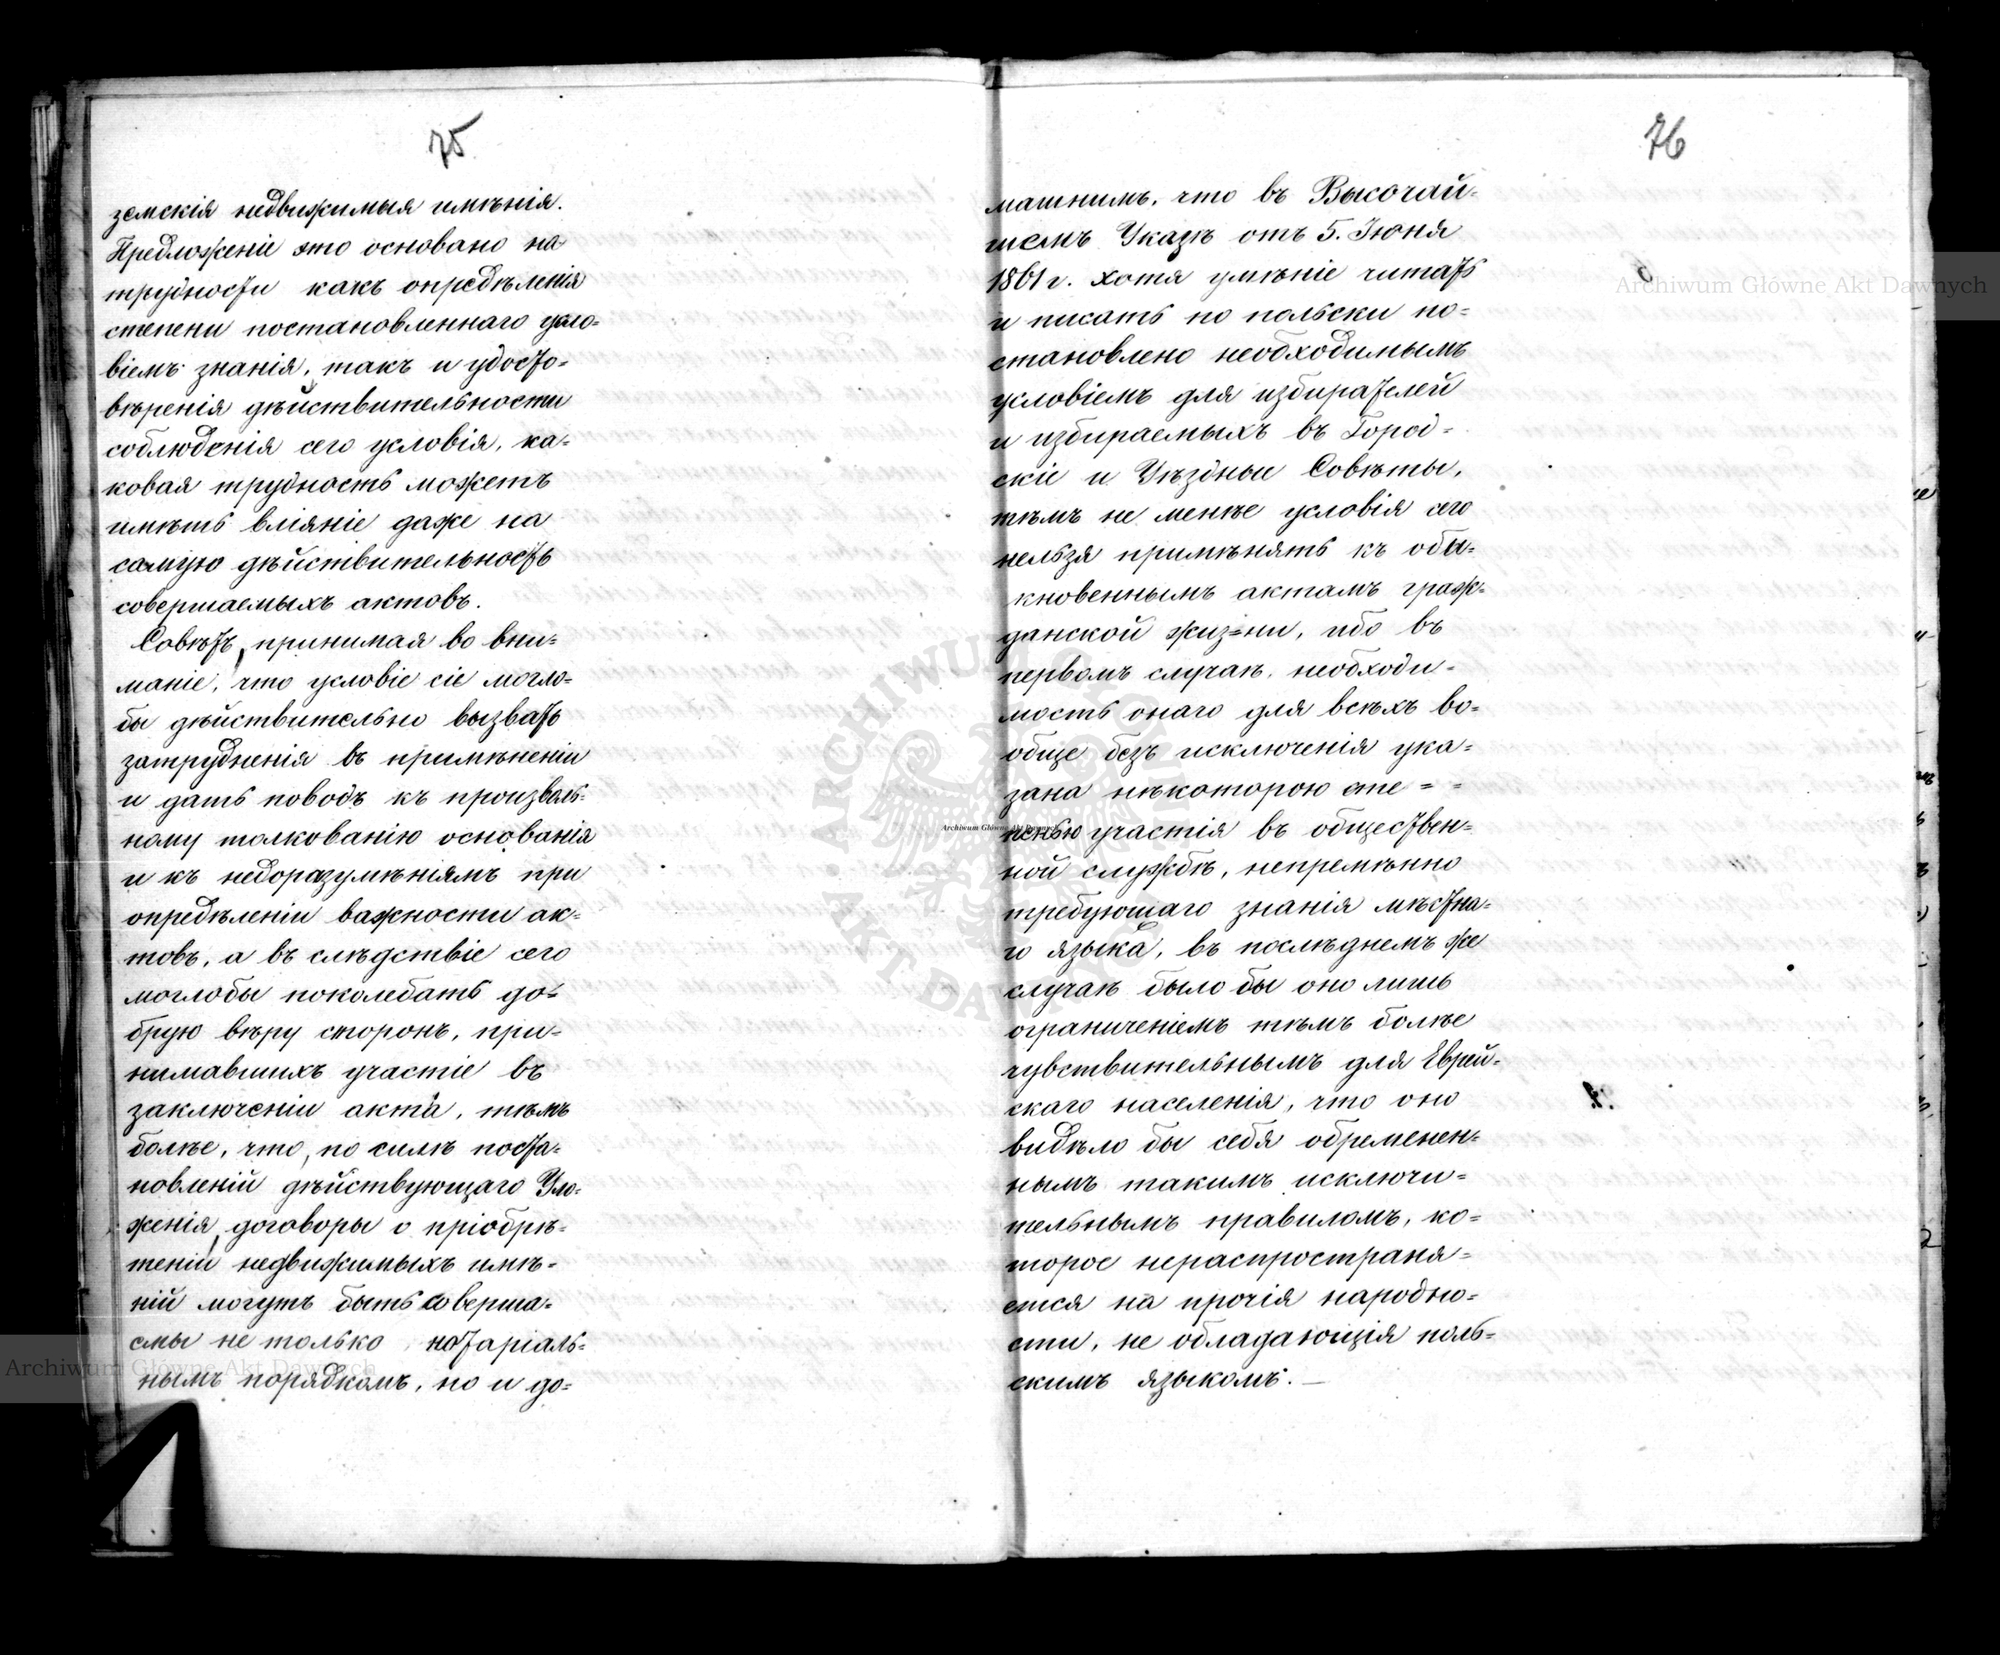 75
земскія недвижимыя имѣнія.
Предложеніе это основано на
трудности какъ опредѣленія
степени постановленнаго усло=
віемъ знанія, такъ и удосто=
вѣренія дѣйствительности
соблюденія сего условія, ка=
ковая трудность можетъ
имѣть вліяніе даже на
самую дѣйствительность
совершаемыхъ актовъ.
Совѣтъ, принимая во вни=
маніе, что условіе сіе могло=
бы дѣйствительно вызвать
затрудненія въ примѣненіи
и дать поводъ къ произволь=
ному толкованію основанія
и къ недоразумѣніямъ при
опредѣленіи важности ак=
товъ, а въ слѣдствіе сего
моглобы поколебать до=
брую вѣру сторонъ, при=
нимавшихъ участіе въ
заключеніи акта, тѣмъ
болѣе, что, по силѣ поста=
новленій дѣйствующаго Уло=
женія, договоры о пріобрѣ=
теніи недвижимыхъ имѣ=
ній могутъ быть соверша=
емы не только нотаріаль=
нымъ порядкомъ, но и до=
76
машнимъ, что въ Высочай=
шемъ Указѣ отъ 5. Іюня
1861 г. хотя умѣніе читать
и писать по польски по=
становлено необходимымъ
условіемъ для избирателей
и избираемыхъ въ Город=
скіе и Уѣздные Совѣты,
тѣмъ не менѣе условія сего
нельзя примѣнять къ обы=
кновеннымъ актамъ граж=
данской жиз=ни, ибо въ
первомъ случаѣ, необходи=
мость онаго для всѣхъ во=
обще безъ исключенія ука=
зана нѣкоторою сте = =
пенью участія въ обществен=
ной службѣ, непремѣнно
требующаго знанія мѣстна=
го языка, въ послѣднемъ же
случаѣ было бы оно лишь
ограниченіемъ тѣмъ болѣе
чувствительнымъ для Еврей=
скаго населенія, что оно
видѣло бы себя обременен=
нымъ такимъ исключи=
тельнымъ правиломъ, ко=
торое нераспространя=
ется на прочія народно=
сти, не обладающія поль=
скимъ языкомъ. —
Archiwum Główne Akt Dawnych
Archiwum Główne Akt Dawnych
Archiwum Główne Akt Dawnych